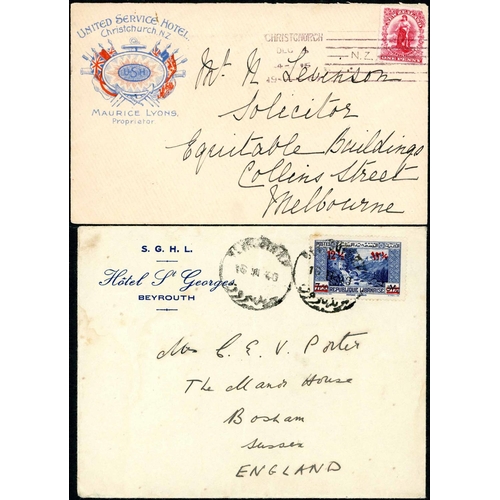 UNITED SERVICE HOTEL.
Christchurch N.Z.
U·S·H
MAURICE LYONS,
Proprietor
CHRISTCHURCH
DEC
N.Z.
Mr. N. Levinson
Solicitor
Equitable Buildings
Collins Street
Melbourne
S. G. H. L.
Hôtel St Georges
BEYROUTH
POSTES
REPUBLIQUE LIBANAISE
Mrs C. E. V. Porter
The Manor House
Bosham
Sussex
ENGLAND